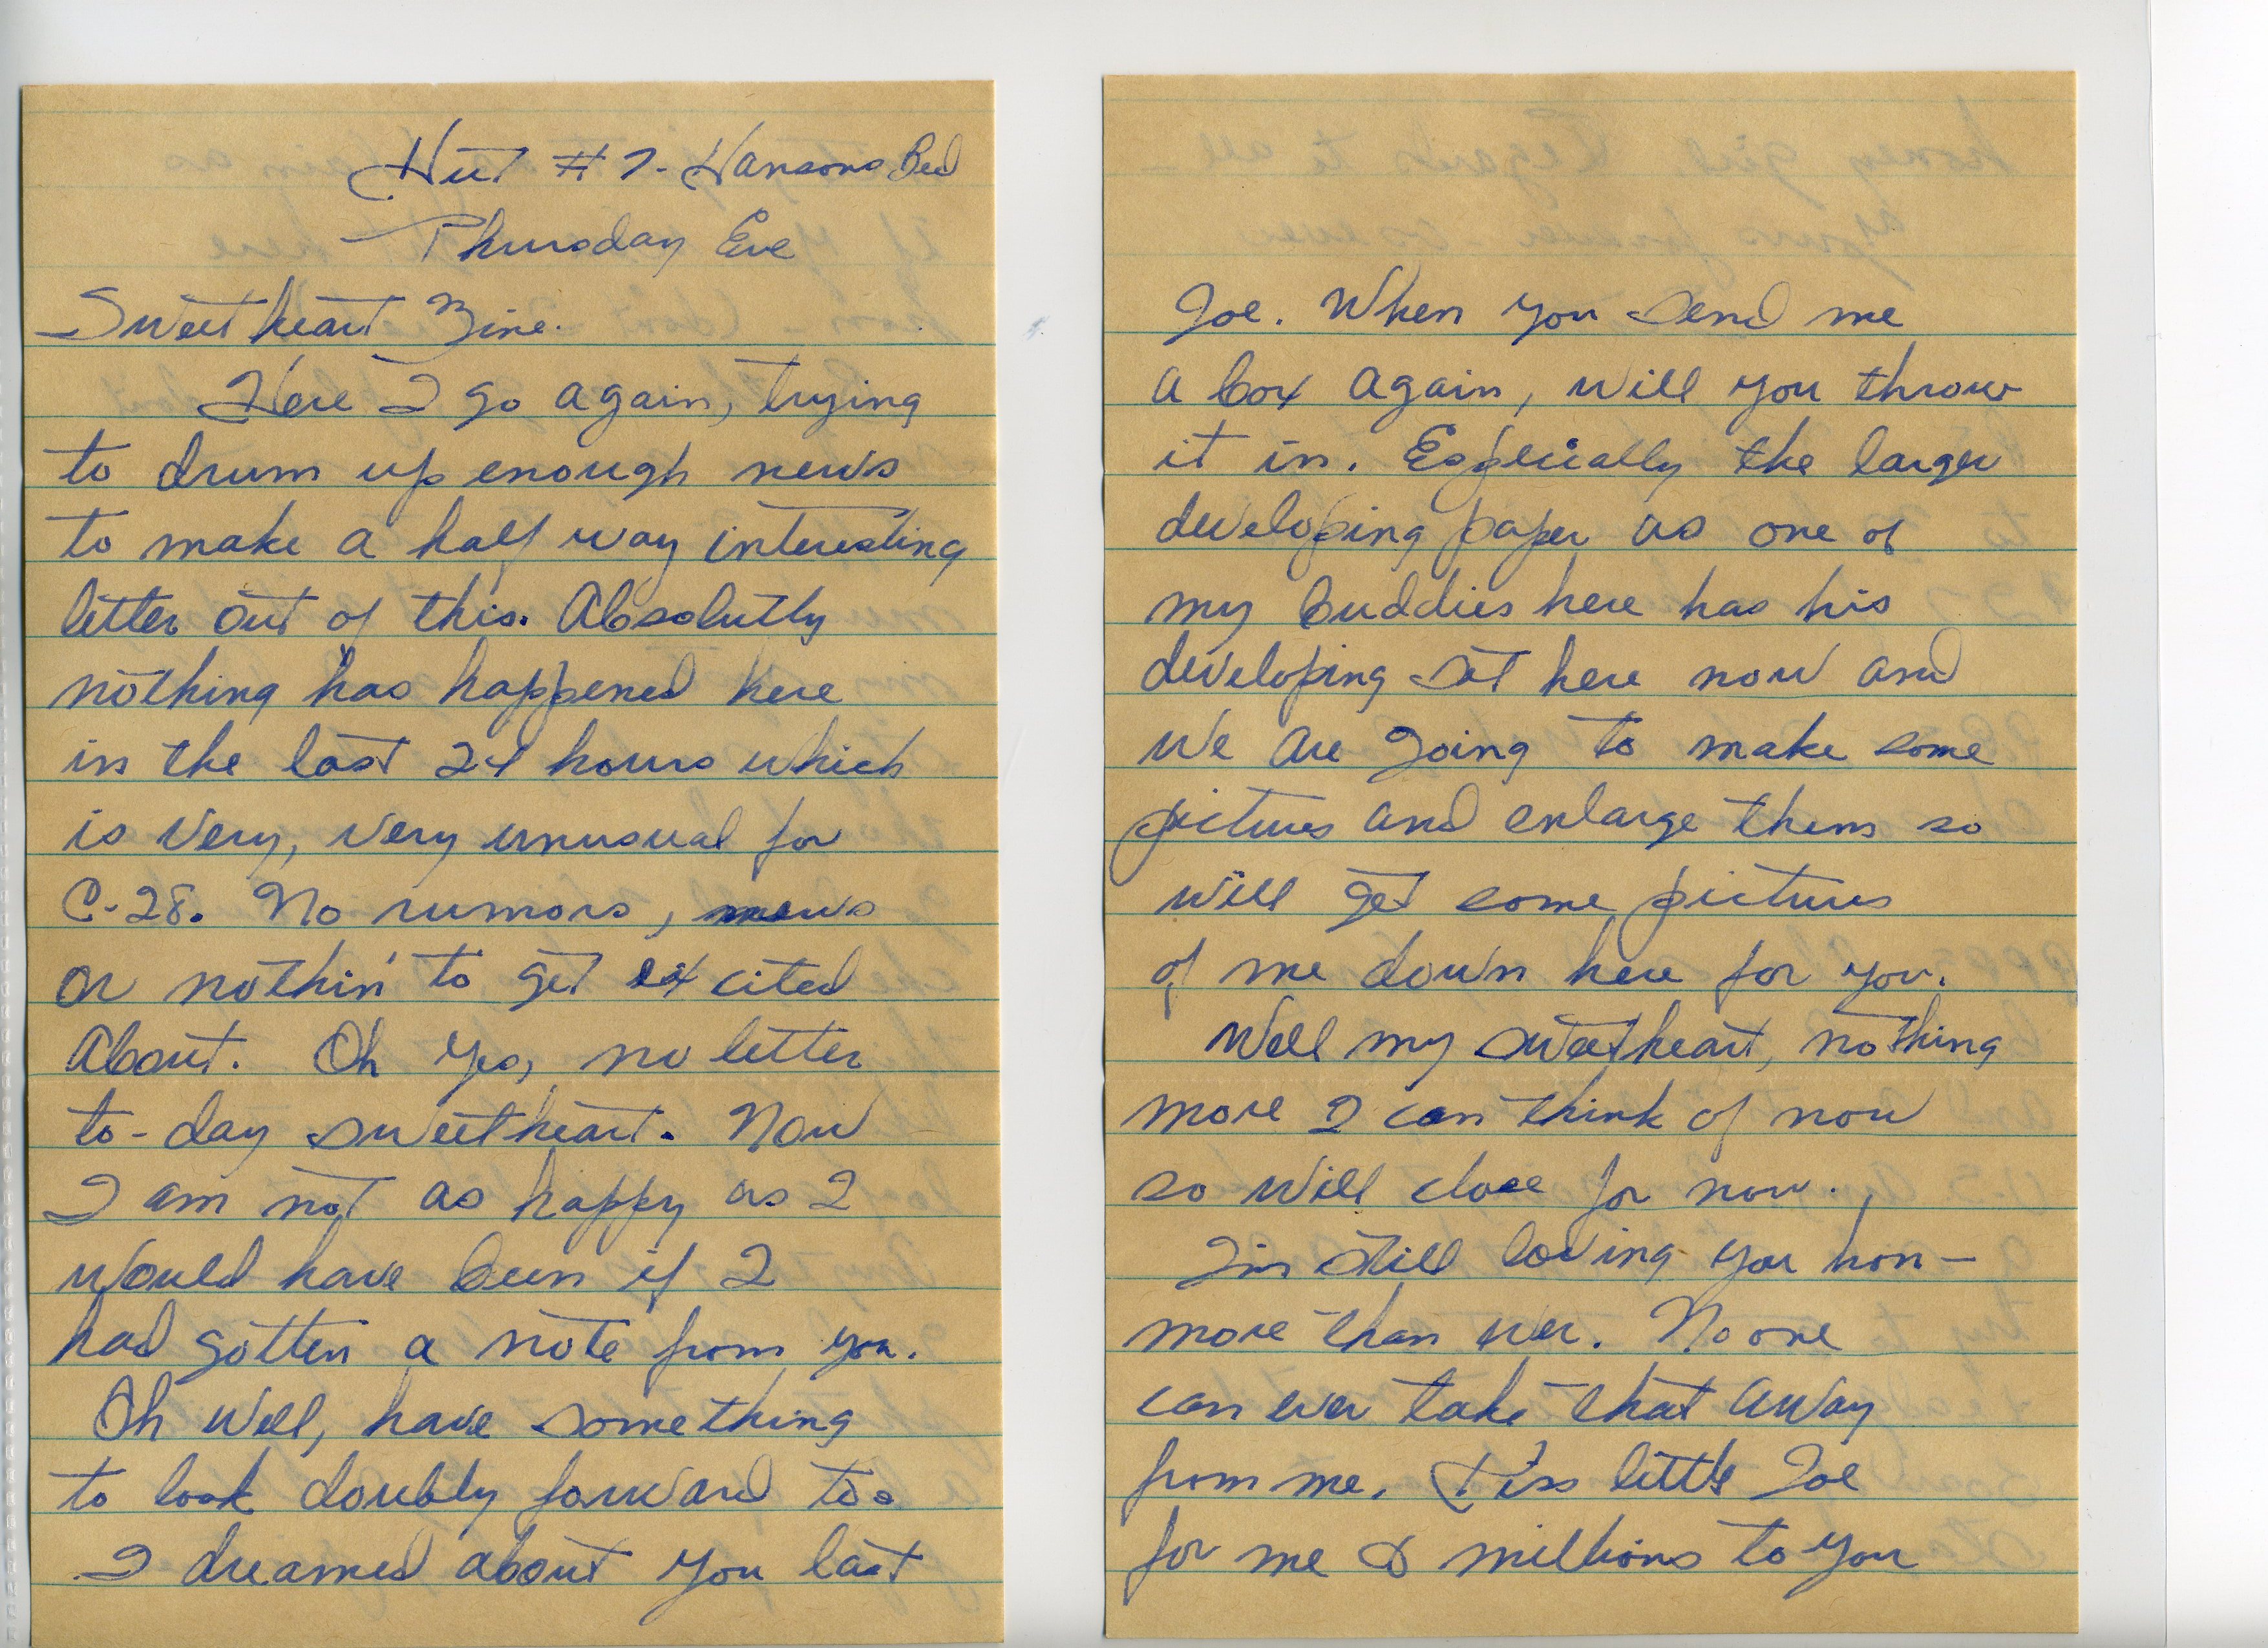 Hut # 7 - Hansons Bed
Thursday Eve
Sweetheart Bine.
Here I go again, trying
to drum up enough news
to make a half way interesting
letter out of this. Absolutly
nothing has happened here
in the last 24 hours which
is very, very unusual for
C-28. No rumors, news
or nothin' to get excited
about. Oh yes, no letter
to-day sweetheart. Now
I am not as happy as I
would have been if I
had gotten a note from you.
Oh well, have something
to look doubly forward to.
I dreamed about you last
Joe. When you send me
a box again, will you throw
it in. Especially the larger
developing paper as one of
my buddies here has his
developing set here now and
we are going to make some
pictures and enlarge them so
will get some pictures
of me down here for you.
Well my sweetheart, nothing
more I can think of now
so will close for now.
I'm still loving you hon -
more than ever. No one
can ever take that away
from me. Kiss little Joe
for me & millions to you